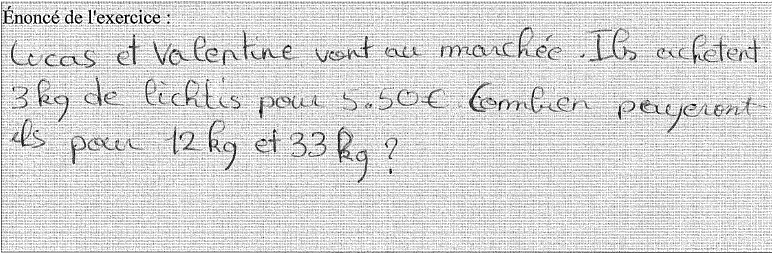 Énoncé de l'exercice :
Lucas et Valentine vont au marchée. Ils achetent
3kg de lichtis pour 5.50€. Combien payeront
ils pour 12kg et 33kg ?